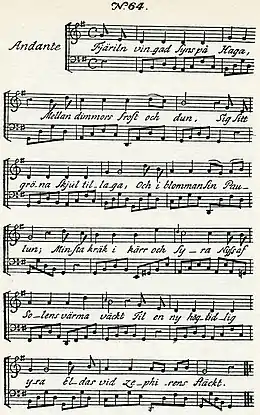 No. 64.
Andante
Fjäriln vin_gad syns på Haga,
Mellan dimmors frost och dun, Sig sitt
grö_na skjul til_laga, Och i blomman sin Pau_
lun; Minsta kräk i kärr och Sy_ra Nyss af
So_lens värma väckt Til en ny hög_tid_lig
yra El_das vid ze_phi_rens fläckt.